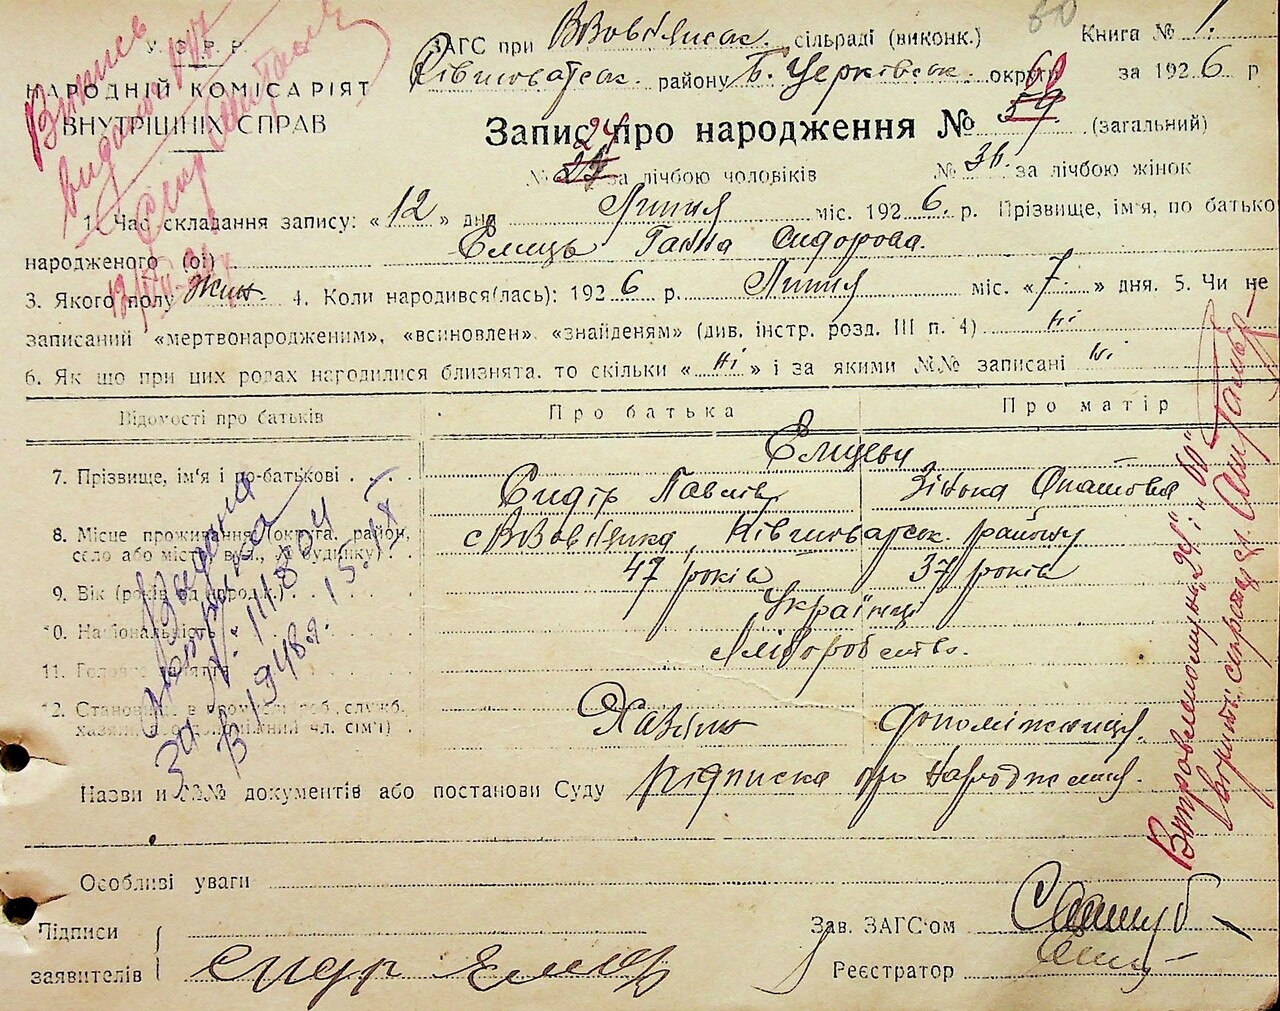 У.С.Р.Р.
НАРОДНІЙ КОМІСАРІЯТ
ВНУТРІШНІХ СПРАВ
Випись
видано
ЗАГС при сільраді (виконк.)
Книга № 1.
району Б. Церківськ. округи
за 1926 р
Запис про народження № 59 60 (загальний)
№ 24 за лічбою чоловіків № 36. за лічбою жінок
1. Час складання запису: «12» дня Липня міс. 1926. р. Прізвище, ім'я, по батькові
народженого (ої) Ємець Ганна Сидорова.
3. Якого полу Жин. 4. Коли народився(лась): 1926 р. Липня міс. «7.» дня. 5. Чи не
записаний «мертвонародженим», «всиновлен», «знайденям» (див. інстр. розд. III п. 4) ні
6. Як що при цих родах нагодилися близнята. то скільки «ні» і за якими №№ записані ні
Відомості про батьків
Про батька
Про матір
7. Прізвище, ім'я і по-батькові
Ємець
Сидір Павлів
Зінька
8. Місце проживання (округа, район, село або місто, вул., № будинку)
району
9. Вік (років од народж.)
47 років
37 років
10. Національність
Українці
11. Головне заняття
Хліборобство.
12. Становище в промислі (роб. служб. хазяїн, допоміжний чл. сім'ї)
Хазяїн
допоміжниця.
Видана
метрика
за № 111804
В 1948 г. 15/IX
Назви и №№ документів або постанови Суду підписка про народження.
Особливі уваги
Підписи
заявителів
Сидір Ємець
Зав. ЗАГС'ом
Реєстратор
Виправленому на "24" і на "60"
вірить секретар